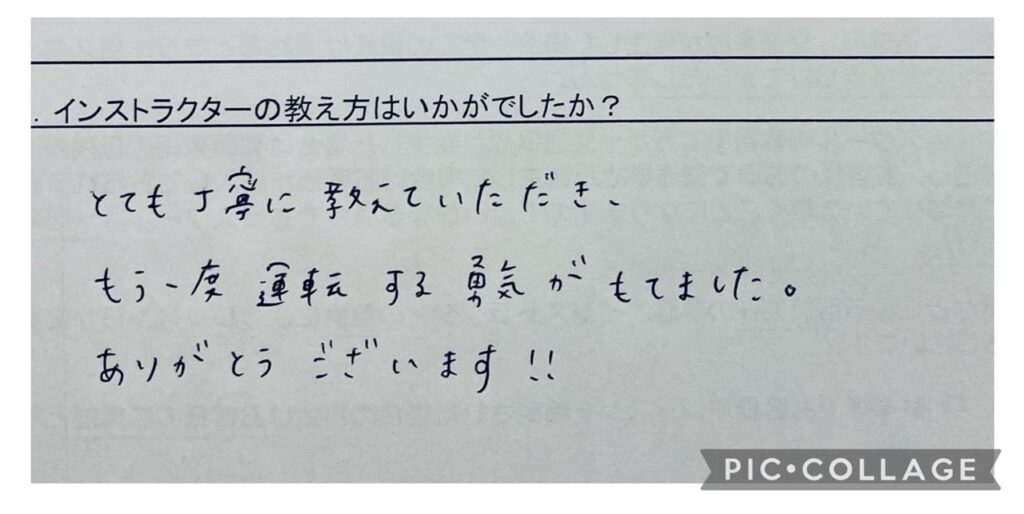 . インストラクターの教え方はいかがでしたか？
とても丁寧に教えていただき、
もう一度 運転する勇気がもてました。
ありがとうございます!!
PIC•COLLAGE